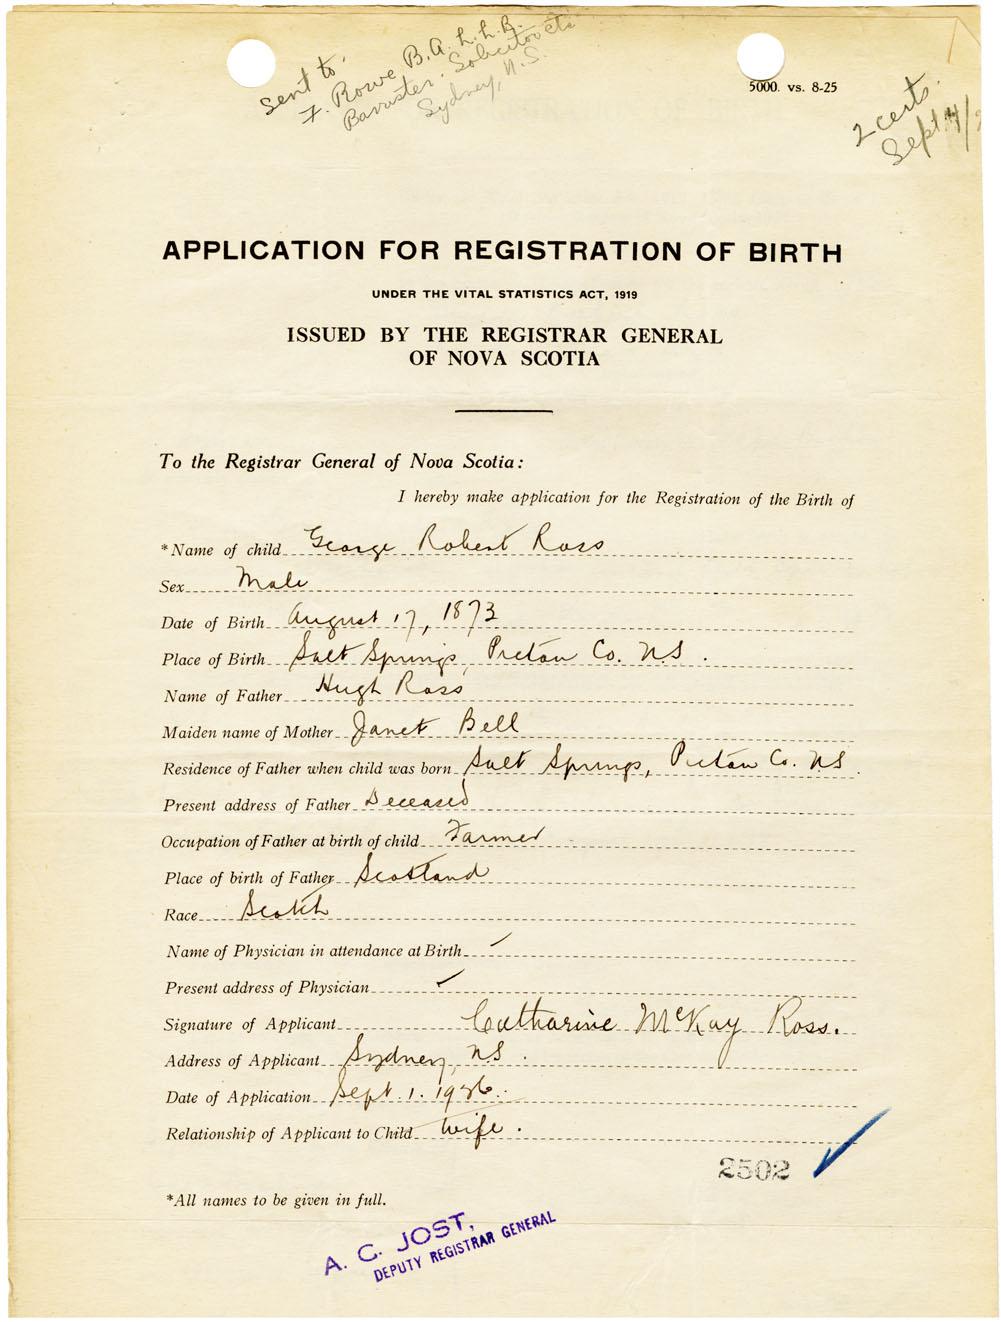 Sent to:
F. Rowe B.A. L.L.B.
Barrister. Solicitor etc
Sydney, N.S.
5000. vs. 8-25
2 certs.
Sept 4/2
APPLICATION FOR REGISTRATION OF BIRTH
UNDER THE VITAL STATISTICS ACT, 1919
ISSUED BY THE REGISTRAR GENERAL
OF NOVA SCOTIA
To the Registrar General of Nova Scotia:
I hereby make application for the Registration of the Birth of
*Name of child George Robert Ross
Sex Male
Date of Birth August 17, 1873
Place of Birth Salt Springs, Pictou Co. N.S.
Name of Father Hugh Ross
Maiden name of Mother Janet Bell
Residence of Father when child was born Salt Springs, Pictou Co. N.S.
Present address of Father Deceased
Occupation of Father at birth of child Farmer
Place of birth of Father Scotland
Race Scotch
Name of Physician in attendance at Birth
Present address of Physician
Signature of Applicant Catharine McKay Ross.
Address of Applicant Sydney, N.S.
Date of Application Sept. 1. 1926.
Relationship of Applicant to Child wife.
2502
*All names to be given in full.
A. C. JOST,
DEPUTY REGISTRAR GENERAL